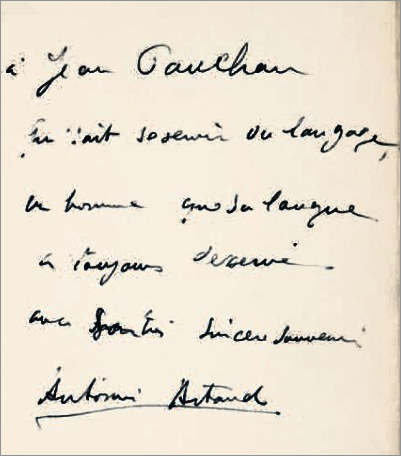 à Jean Paulhan
qui sait se servir du langage,
un homme que sa langue
a toujours desservi
avec sincere souvenir
Antonin Artaud